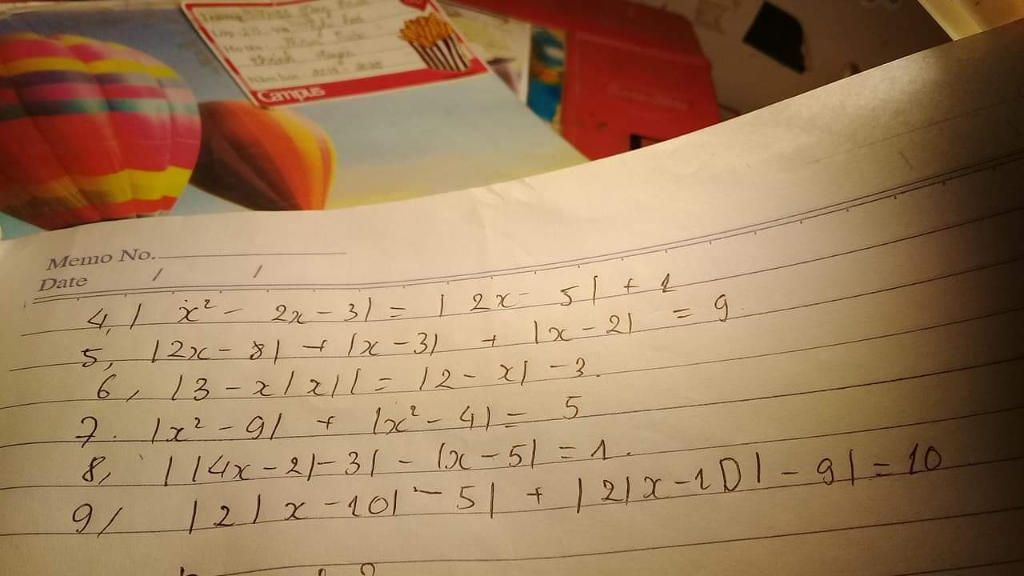 Campus
Memo No.
Date / /
4, | x² - 2x - 3| = |2x - 5| + 1
5, |2x - 8| + |x - 3| + |x - 2| = 9
6, |3 - x|x|| = |2 - x| - 3.
7. |x² - 9| + |x² - 4| = 5
8, ||4x - 2| - 3| - |x - 5| = 1.
9, |2|x - 10| - 5| + |2|x - 10| - 9| = 10